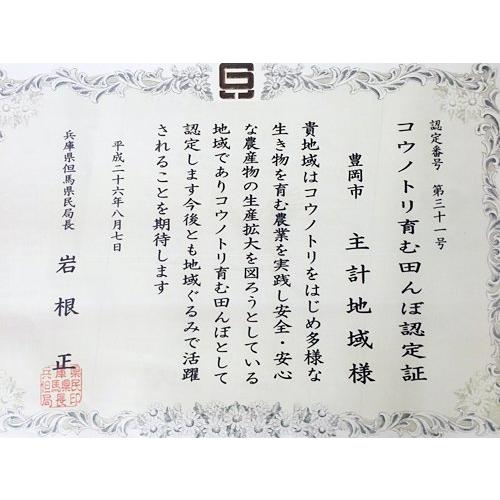 認定番号 第三十一号
コウノトリ育む田んぼ認定証
豊岡市 主計地域様
貴地域はコウノトリをはじめ多様な
生き物を育む農業を実践し安全・安心
な農産物の生産拡大を図ろうとしている
地域でありコウノトリ育む田んぼとして
認定します今後とも地域ぐるみで活躍
されることを期待します
平成二十六年八月七日
兵庫県但馬県民局長 岩根 正
県民印
庫馬県長
兵但局